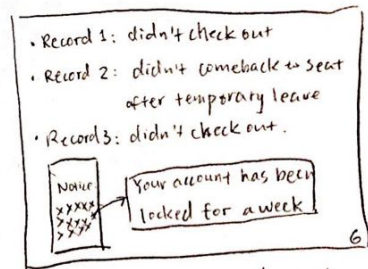 • Record 1: didn't check out
• Record 2: didn't comeback to seat
after temporary leave
• Record 3: didn't check out.
Notice
xxxxx
xxxx
xxxx
Your account has been
locked for a week
6